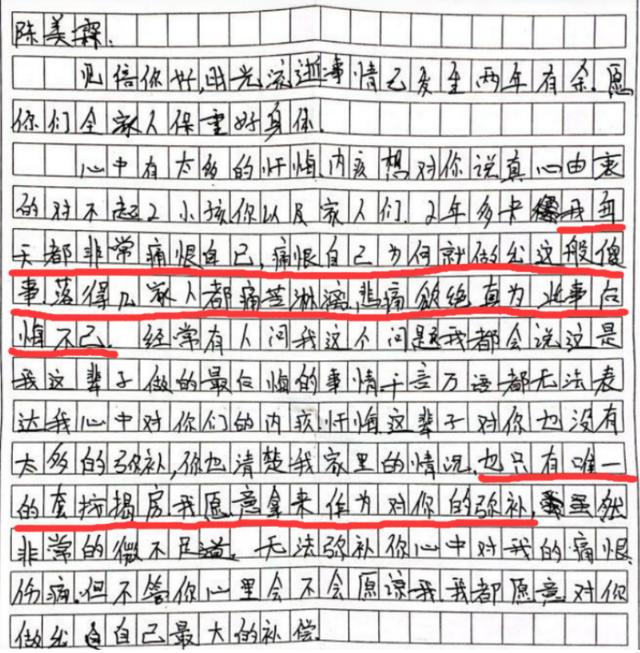 陈美霖.
见信你好,时光流逝事情已发至两年有余.愿
你们全家人保重好身体.
心中有太多的忏悔.内疚想对你说真心由衷
的对不起2小孩你以及家人们.2年多来我每
天都非常痛恨自己,痛恨自己为何就做出这般傻
事.落得几家人都痛苦淋漓,悲痛欲绝真为此事后
悔不已.经常有人问我这个问题我都会说这是
我这辈子做的最后悔的事情.千言万语都无法表
达我心中对你们的内疚.忏悔.这辈子对你也没有
太多的弥补,你也清楚我家里的情况.也只有唯一
的套按揭房我愿意拿来作为对你的弥补.虽然
非常的微不足道.无法弥补你心中对我的痛恨.
伤痛.但不管你心里会不会愿谅我.我都愿意对你
做出自己最大的补偿.